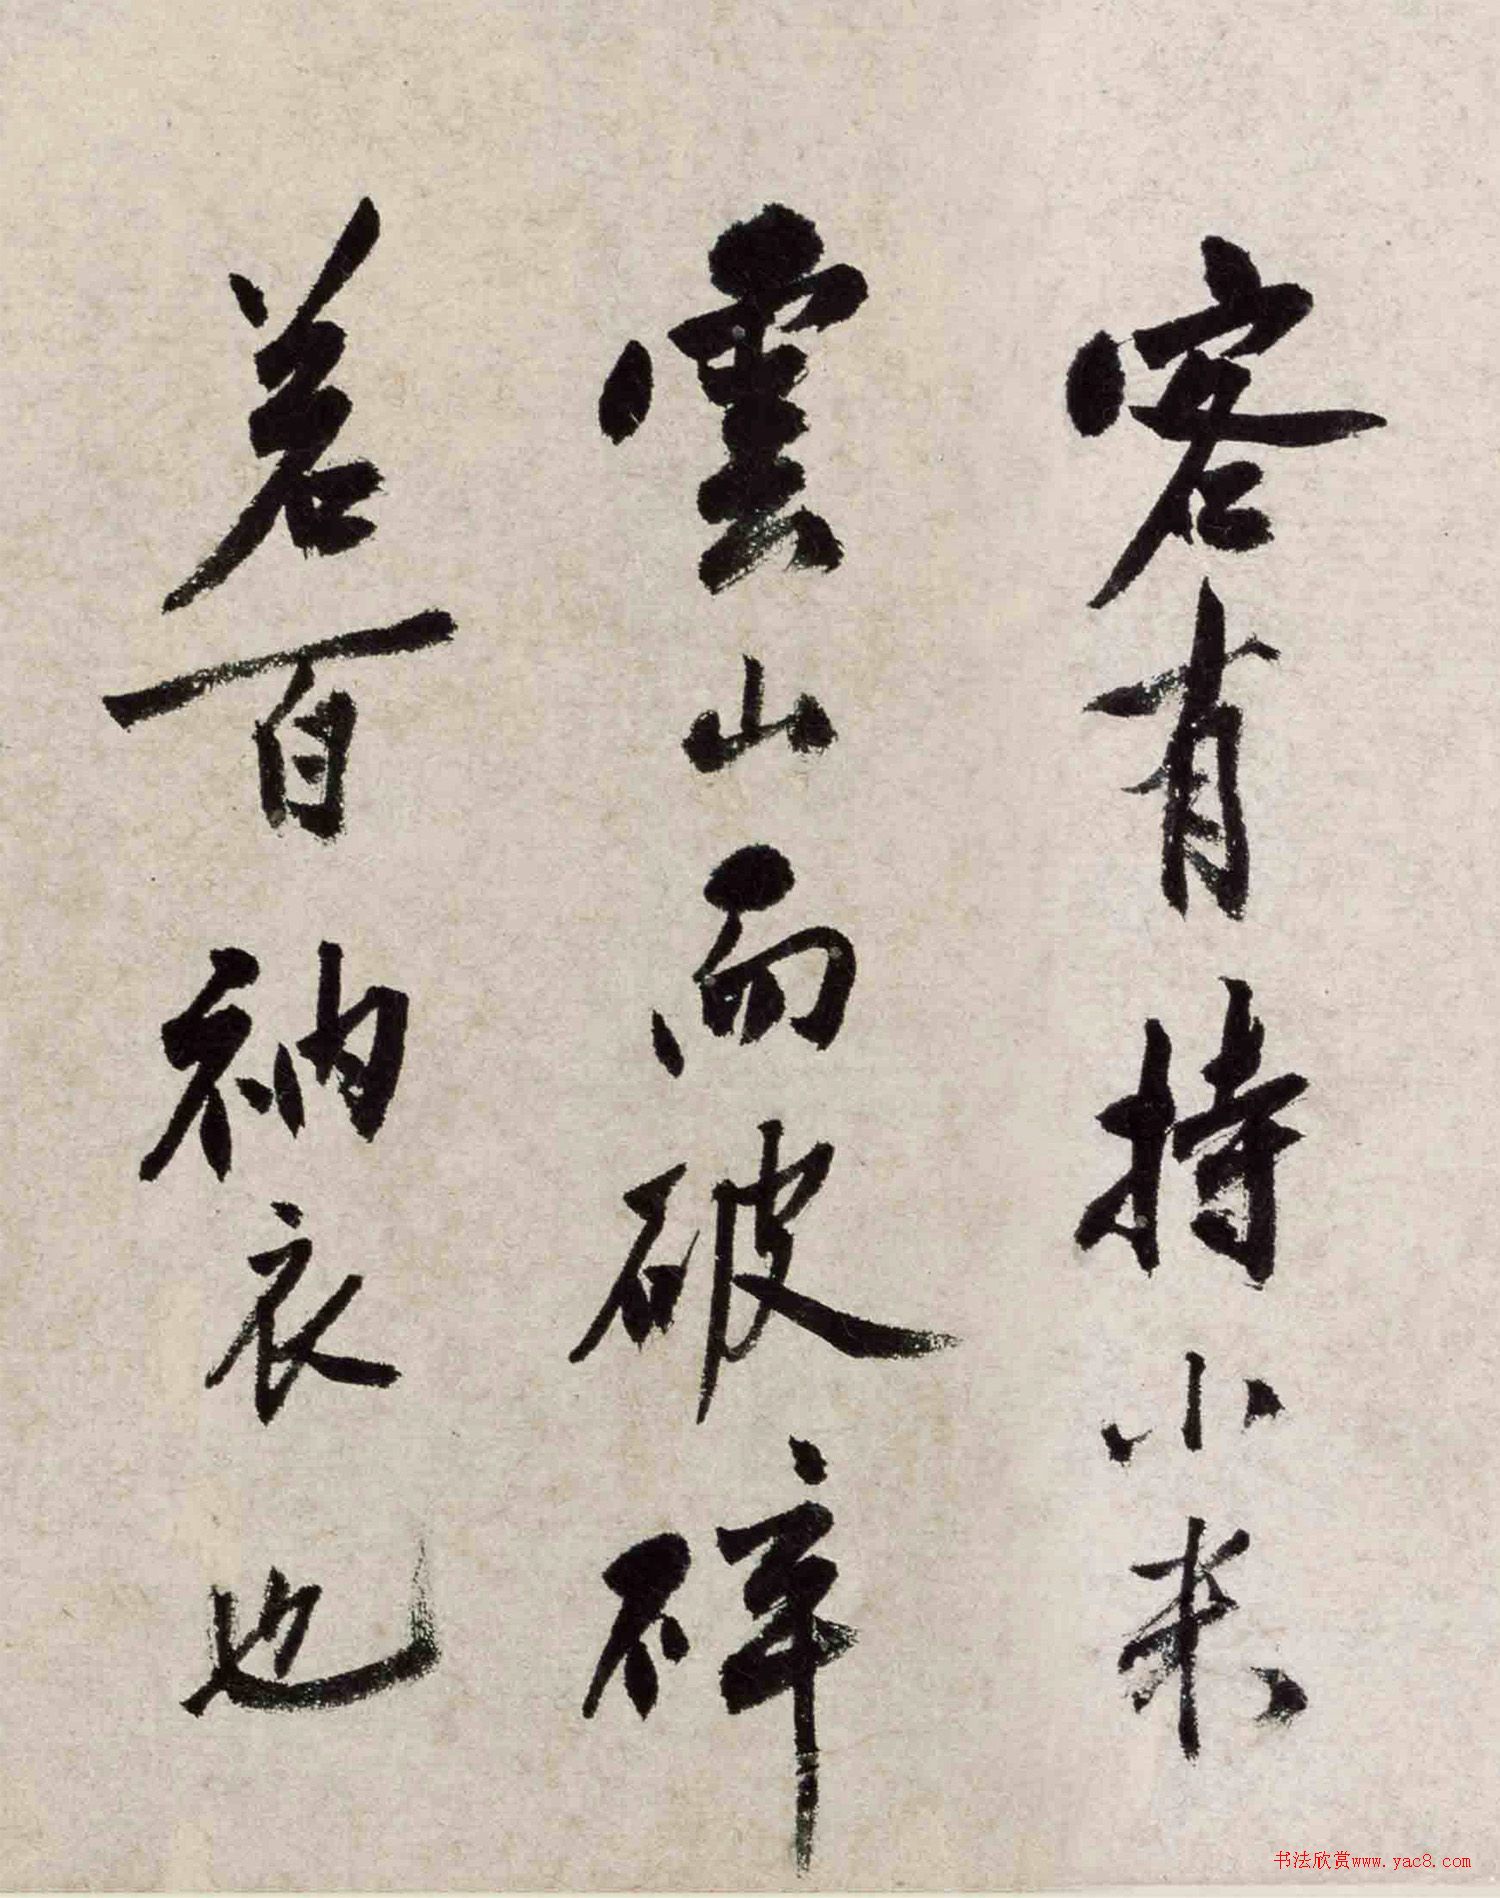 客有持小米
雲山而破碎
若百衲衣也
书法欣赏www.yac8.com